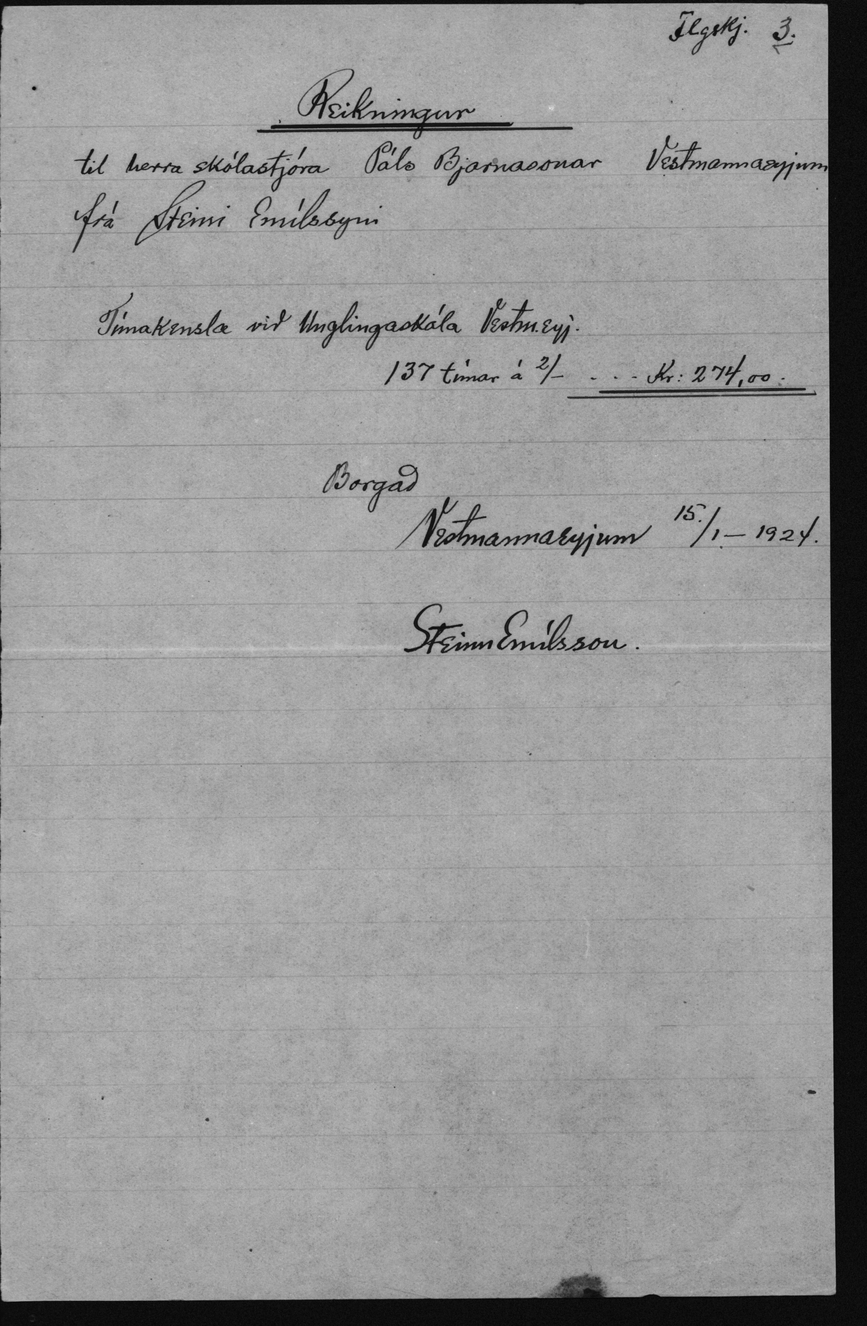 Flgskj. 3.
Reikningur
til herra skólastjóra Páls Bjarnasonar Vestmannaeyjum
frá Steini Emilssyni
Tímakensla við Unglingaskóla Vestm.eyj.
137 tímar á 2/- . . - Kr: 274,00.
Borgað
Vestmannaeyjum 15./1 - 1924.
Steinn Emilsson.